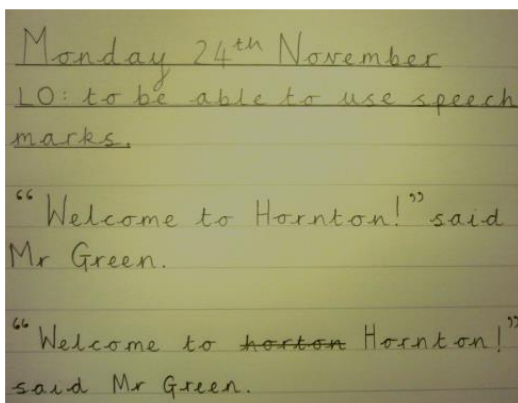 Monday 24th November
LO: to be able to use speech
marks.
“Welcome to Hornton!” said
Mr Green.
“Welcome to horton Hornton!”
said Mr Green.